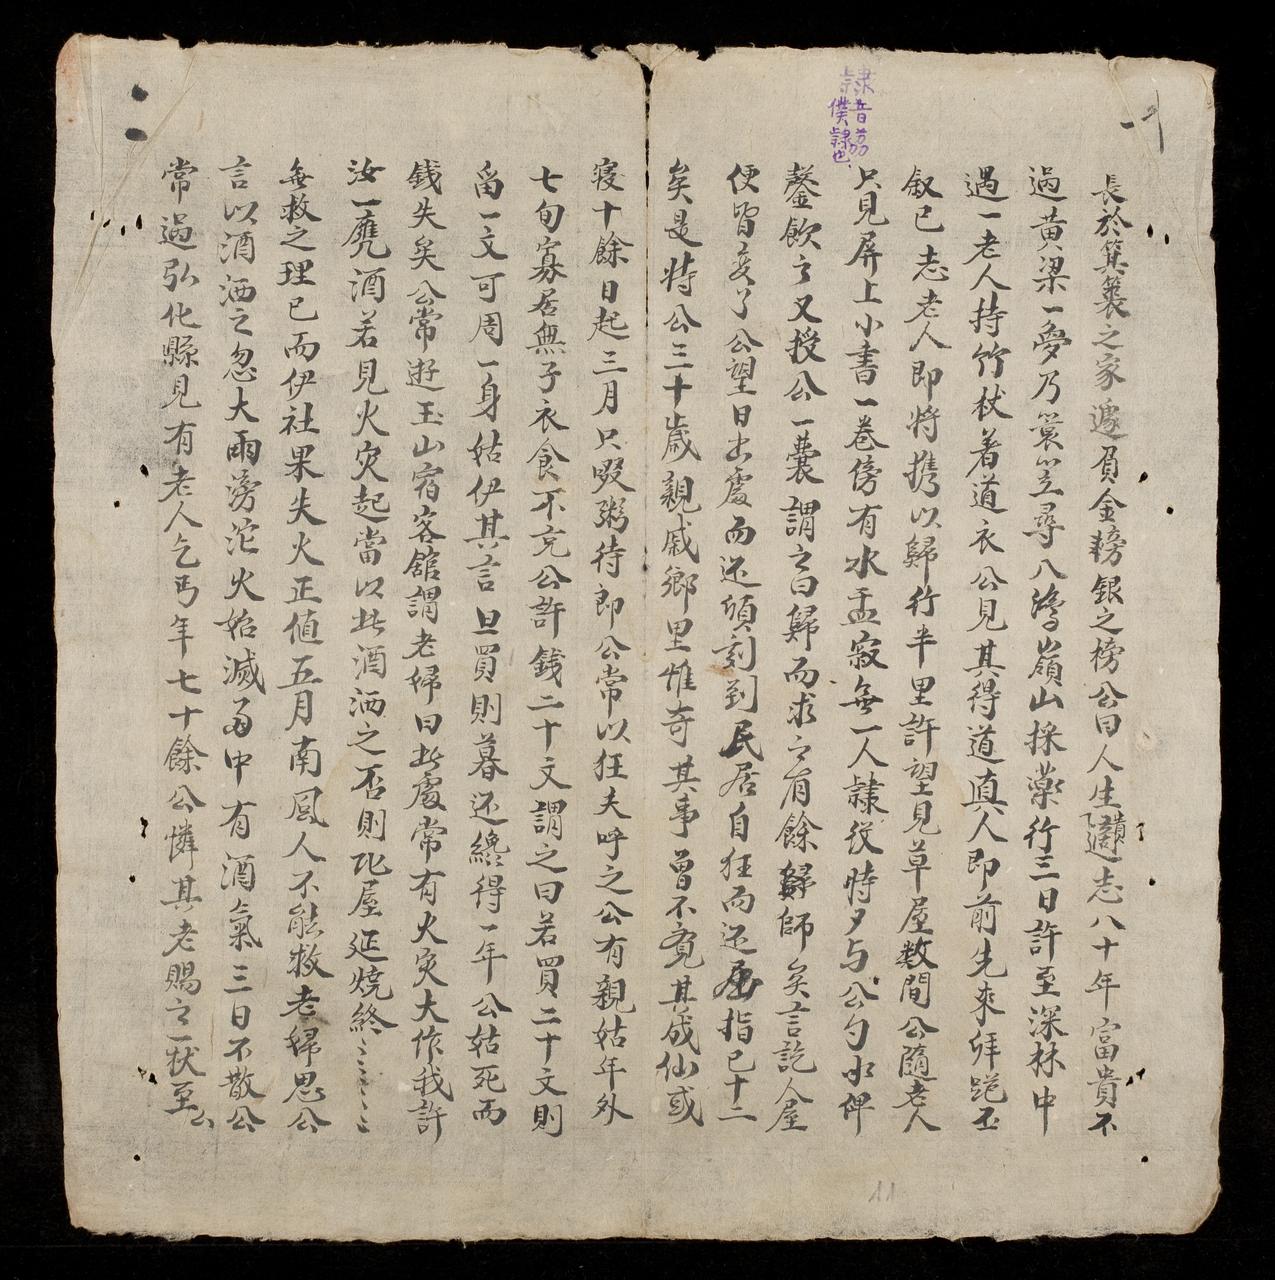 長於箕裘之家遽負金榜銀之榜公曰人生適志八十年富貴不
過黃梁一夢乃簑笠尋八鴻嶺山採藥行三日許至深林中
遇一老人持竹杖着道衣公見其得道真人即前先來拜跪丕
叙已志老人即將携以歸行半里許望見草屋数間公隨老人
只見屏上小書一卷傍有水盂寂無一人隸從時夕与公勺水俾
鑿飲之又授公一囊謂之曰歸而求之有餘歸師矣言訖人屋
便皆变了公望日出處而还頃刻到民居自狂而还屈指已十二
矣是時公三十歲親戚鄉里惟奇其事曾不覔其成仙或
寢十餘日起三月只啜粥待即公常以狂夫呼之公有親姑年外
七旬寡居無子衣食不充公許錢二十文謂之曰若買二十文則
留一文可周一身姑伊其言旦買則暮还纔得一年公姑死而
錢失矣公常遊玉山宿客舘謂老婦曰此處常有火灾大作我許
汝一甕酒若見火灾起當以此酒洒之否則比屋延燒終
無救之理已而伊社果失火正值五月南風人不能救老婦思公
言以酒洒之忽大雨滂沱火始滅雨中有酒氣三日不散公
常過弘化縣見有老人乞丐年七十餘公憐其老賜之一杖至公
隸音荔
僕隸也
11